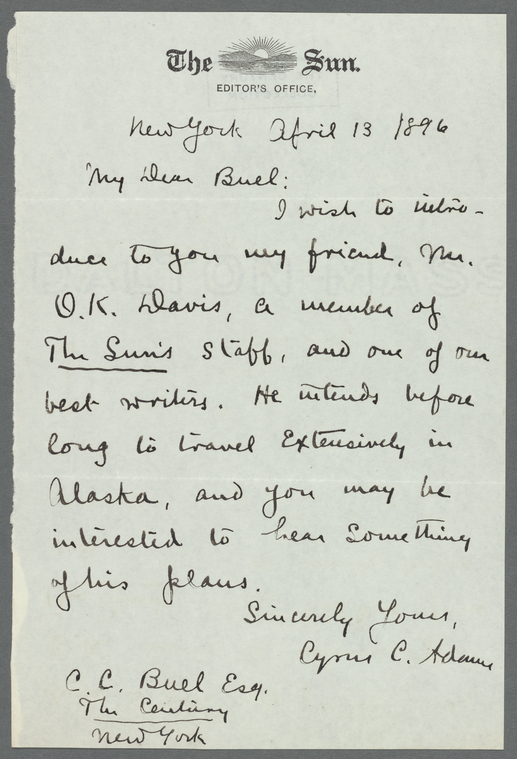 The Sun.
EDITOR'S OFFICE.
New York April 13 1896
My Dear Buel:
I wish to intro-
duce to you my friend, Mr.
O.K. Davis, a member of
The Sun's Staff, and one of our
best writers. He intends before
long to travel Extensively in
Alaska, and you may be
interested to hear Something
of his plans.
Sincerely Yours,
Cyrus C. Adams
C. C. Buel Esq.
The Century
New York